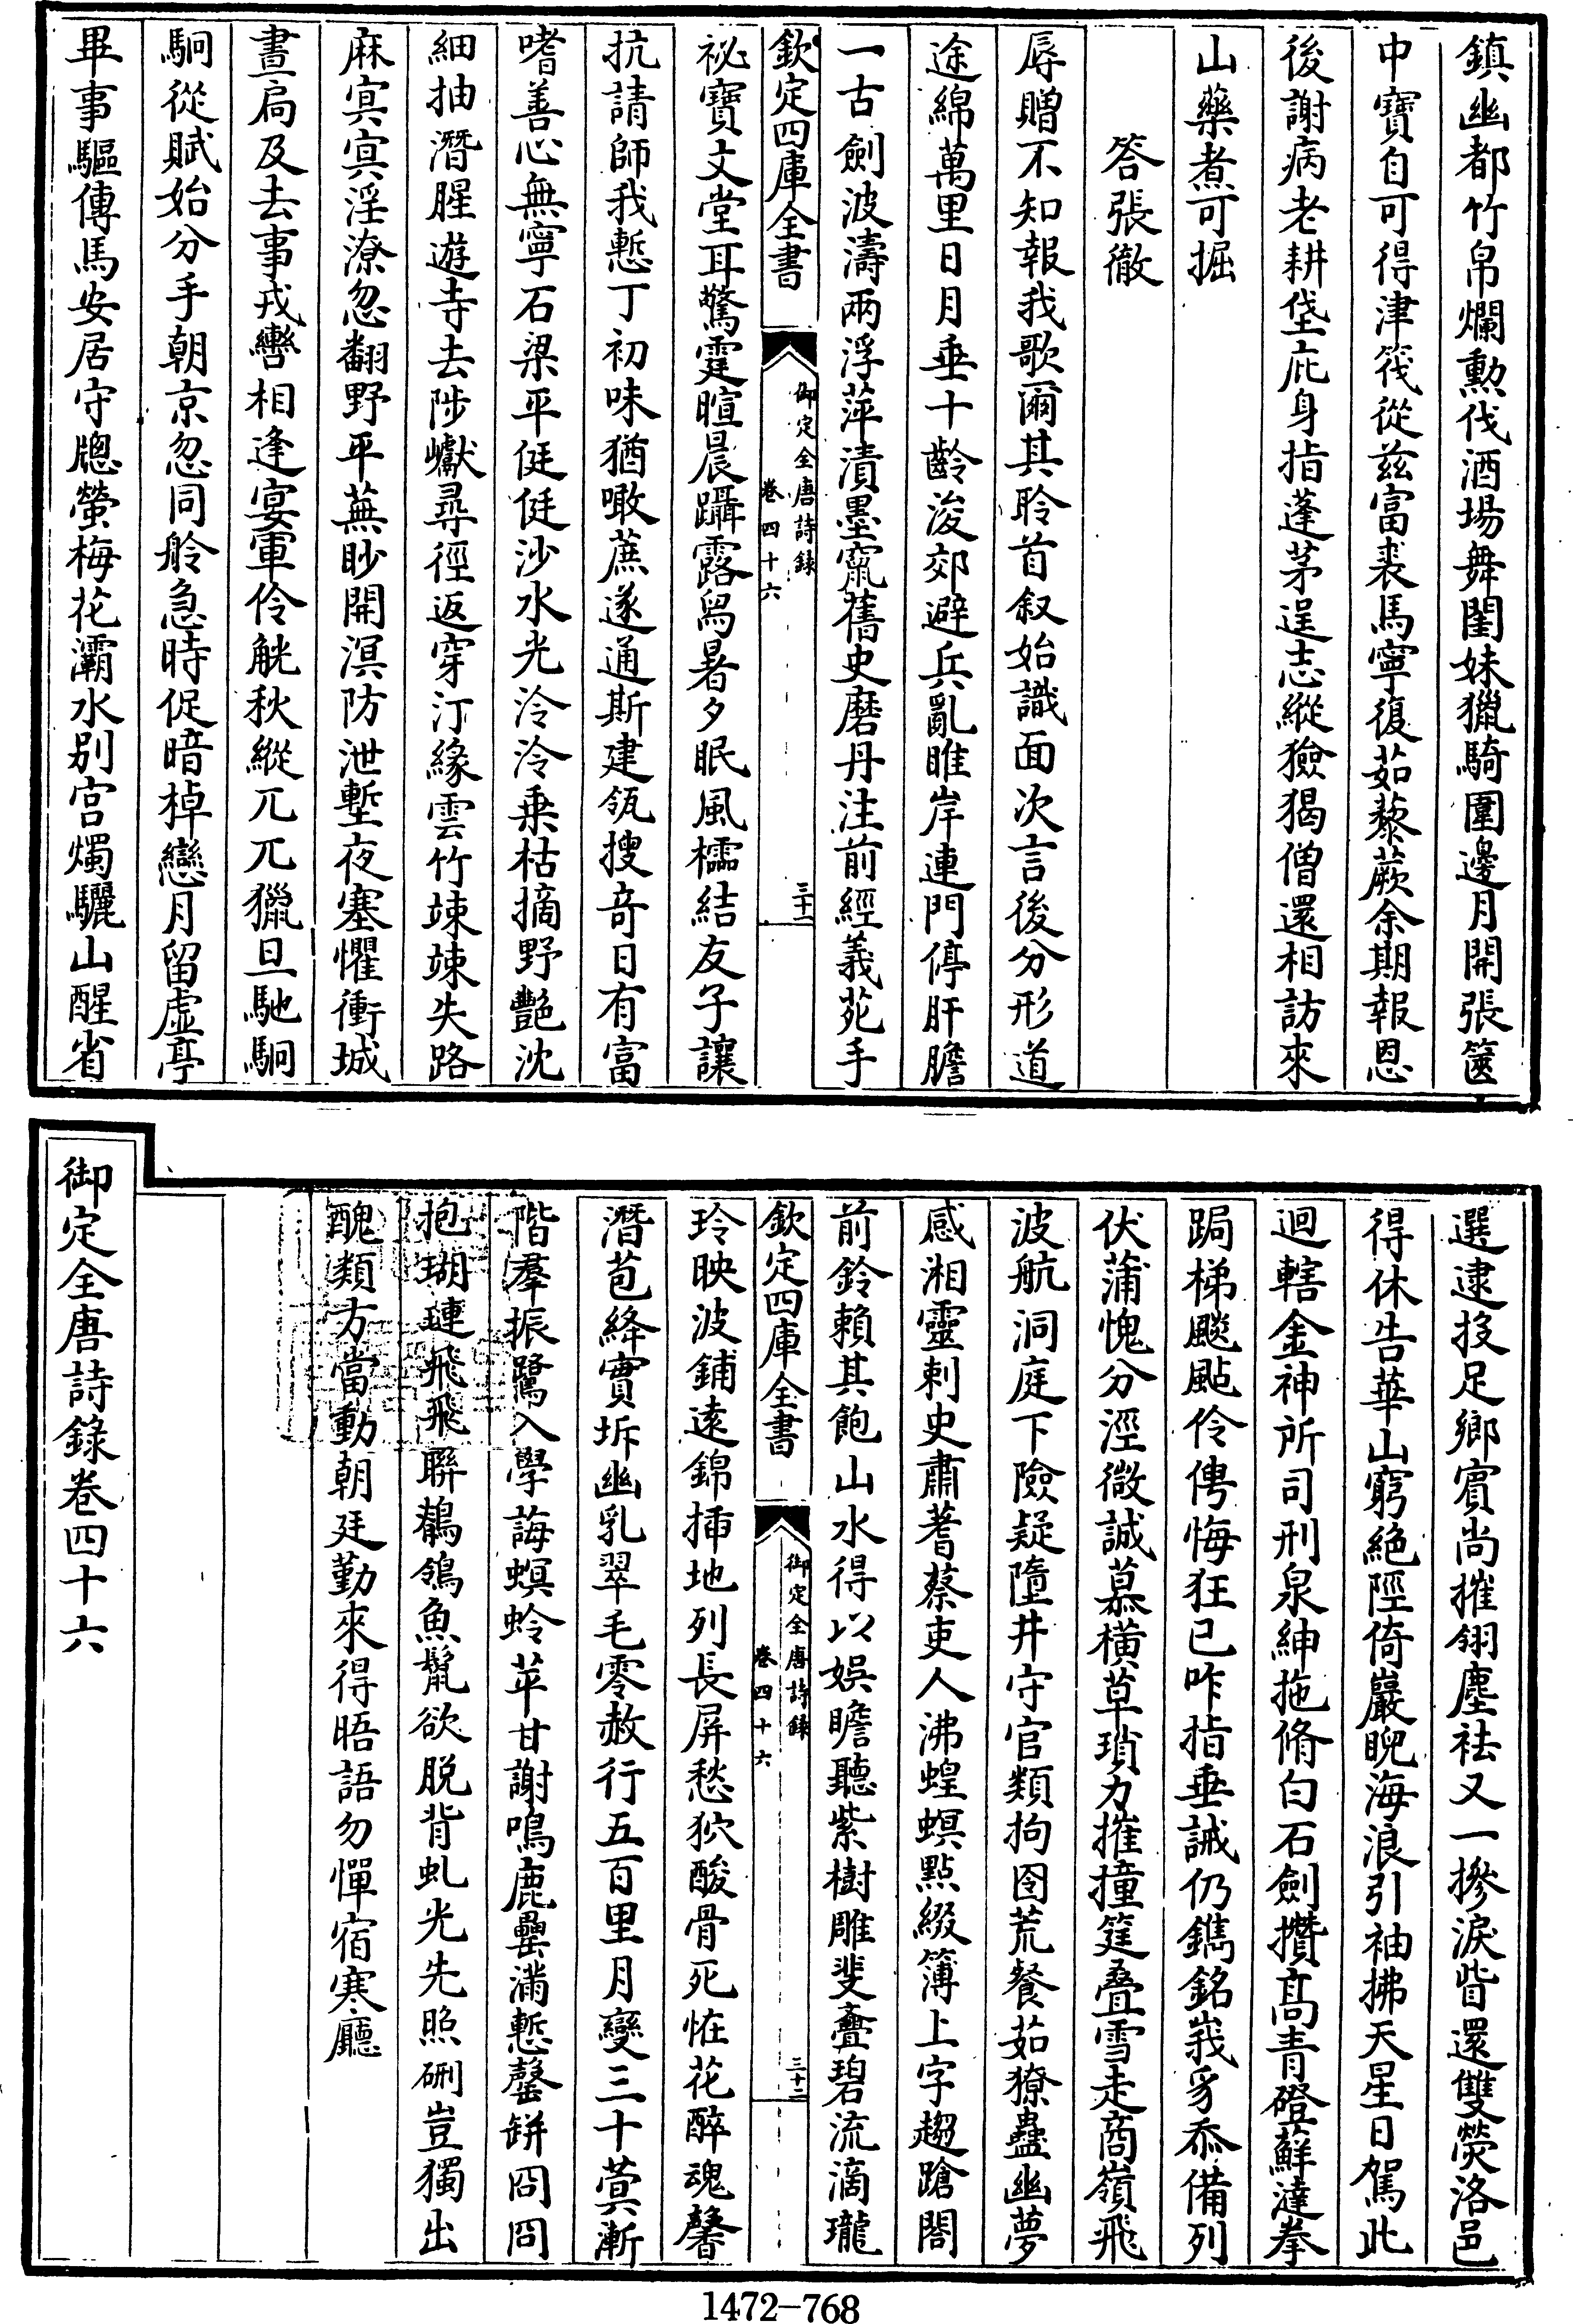 鎮幽都竹帛爛勳伐酒場舞閨姝獵騎圍邊月開張篋
中寶自可得津筏從兹富裘馬寧復茹藜蕨余期報恩
後謝病老耕垡庇身指蓬茅逞志縱獫猲僧還相訪來
山藥煮可掘
答張徹
辱贈不知報我歌爾其聆首叙始識面次言後分形道
途綿萬里日月垂十齡浚郊避兵亂睢岸連門停肝膽
一古劍波濤兩浮萍漬墨竄舊史磨丹注前經義苑手
欽定四庫全書
御定全唐詩録
卷四十六
三十一
祕寶文堂耳驚霆暄晨躡露舄暑夕眠風櫺結友子讓
抗請師我慙丁初味猶噉蔗遂通斯建瓴搜奇日有富
嗜善心無寧石梁平侹侹沙水光泠泠乗枯摘野艶沈
細抽潛腥遊寺去陟巘尋徑返穿汀緣雲竹竦竦失路
麻冥冥淫潦忽翻野平蕪眇開溟防泄塹夜塞懼衝城
晝扃及去事戎轡相逢宴軍伶觥秋縱兀兀獵旦馳駉
駉從賦始分手朝京忽同舲急時促暗棹戀月留虚亭
畢事驅傳馬安居守牕螢梅花灞水别宫燭驪山醒省
選逮投足鄉賓尚摧翎塵袪又一摻淚眥還雙熒洛邑
得休告華山窮絶陘倚巖睨海浪引袖拂天星日駕此
迴轄金神所司刑泉紳拖脩白石劍攢髙青磴蘚澾拳
跼梯飈颭伶俜悔狂已咋指垂誡仍鐫銘峩豸忝備列
伏蒲愧分涇微誠慕横草瑣力摧撞筳疊雪走商嶺飛
波航洞庭下險疑墮井守官類拘囹荒餐茹獠蠱幽夢
感湘靈刺史肅蓍蔡吏人沸蝗螟點綴簿上字趨蹌閤
前鈴賴其飽山水得以娯瞻聽紫樹雕斐亹碧流滴瓏
欽定四庫全書
御定全唐詩録
卷四十六
三十二
玲映波鋪逺錦揷地列長屏愁狖酸骨死恠花醉魂馨
潛苞絳實坼幽乳翠毛零赦行五百里月變三十蓂漸
階羣振鷺入學誨螟蛉苹甘謝鳴鹿罍滿慙罄缾冏冏
抱瑚璉飛飛聯鶺鴒魚鬛欲脱背虬光先照硎豈獨出
醜類方當動朝廷勤來得晤語勿憚宿寒廳
御定全唐詩録卷四十六
1472-768